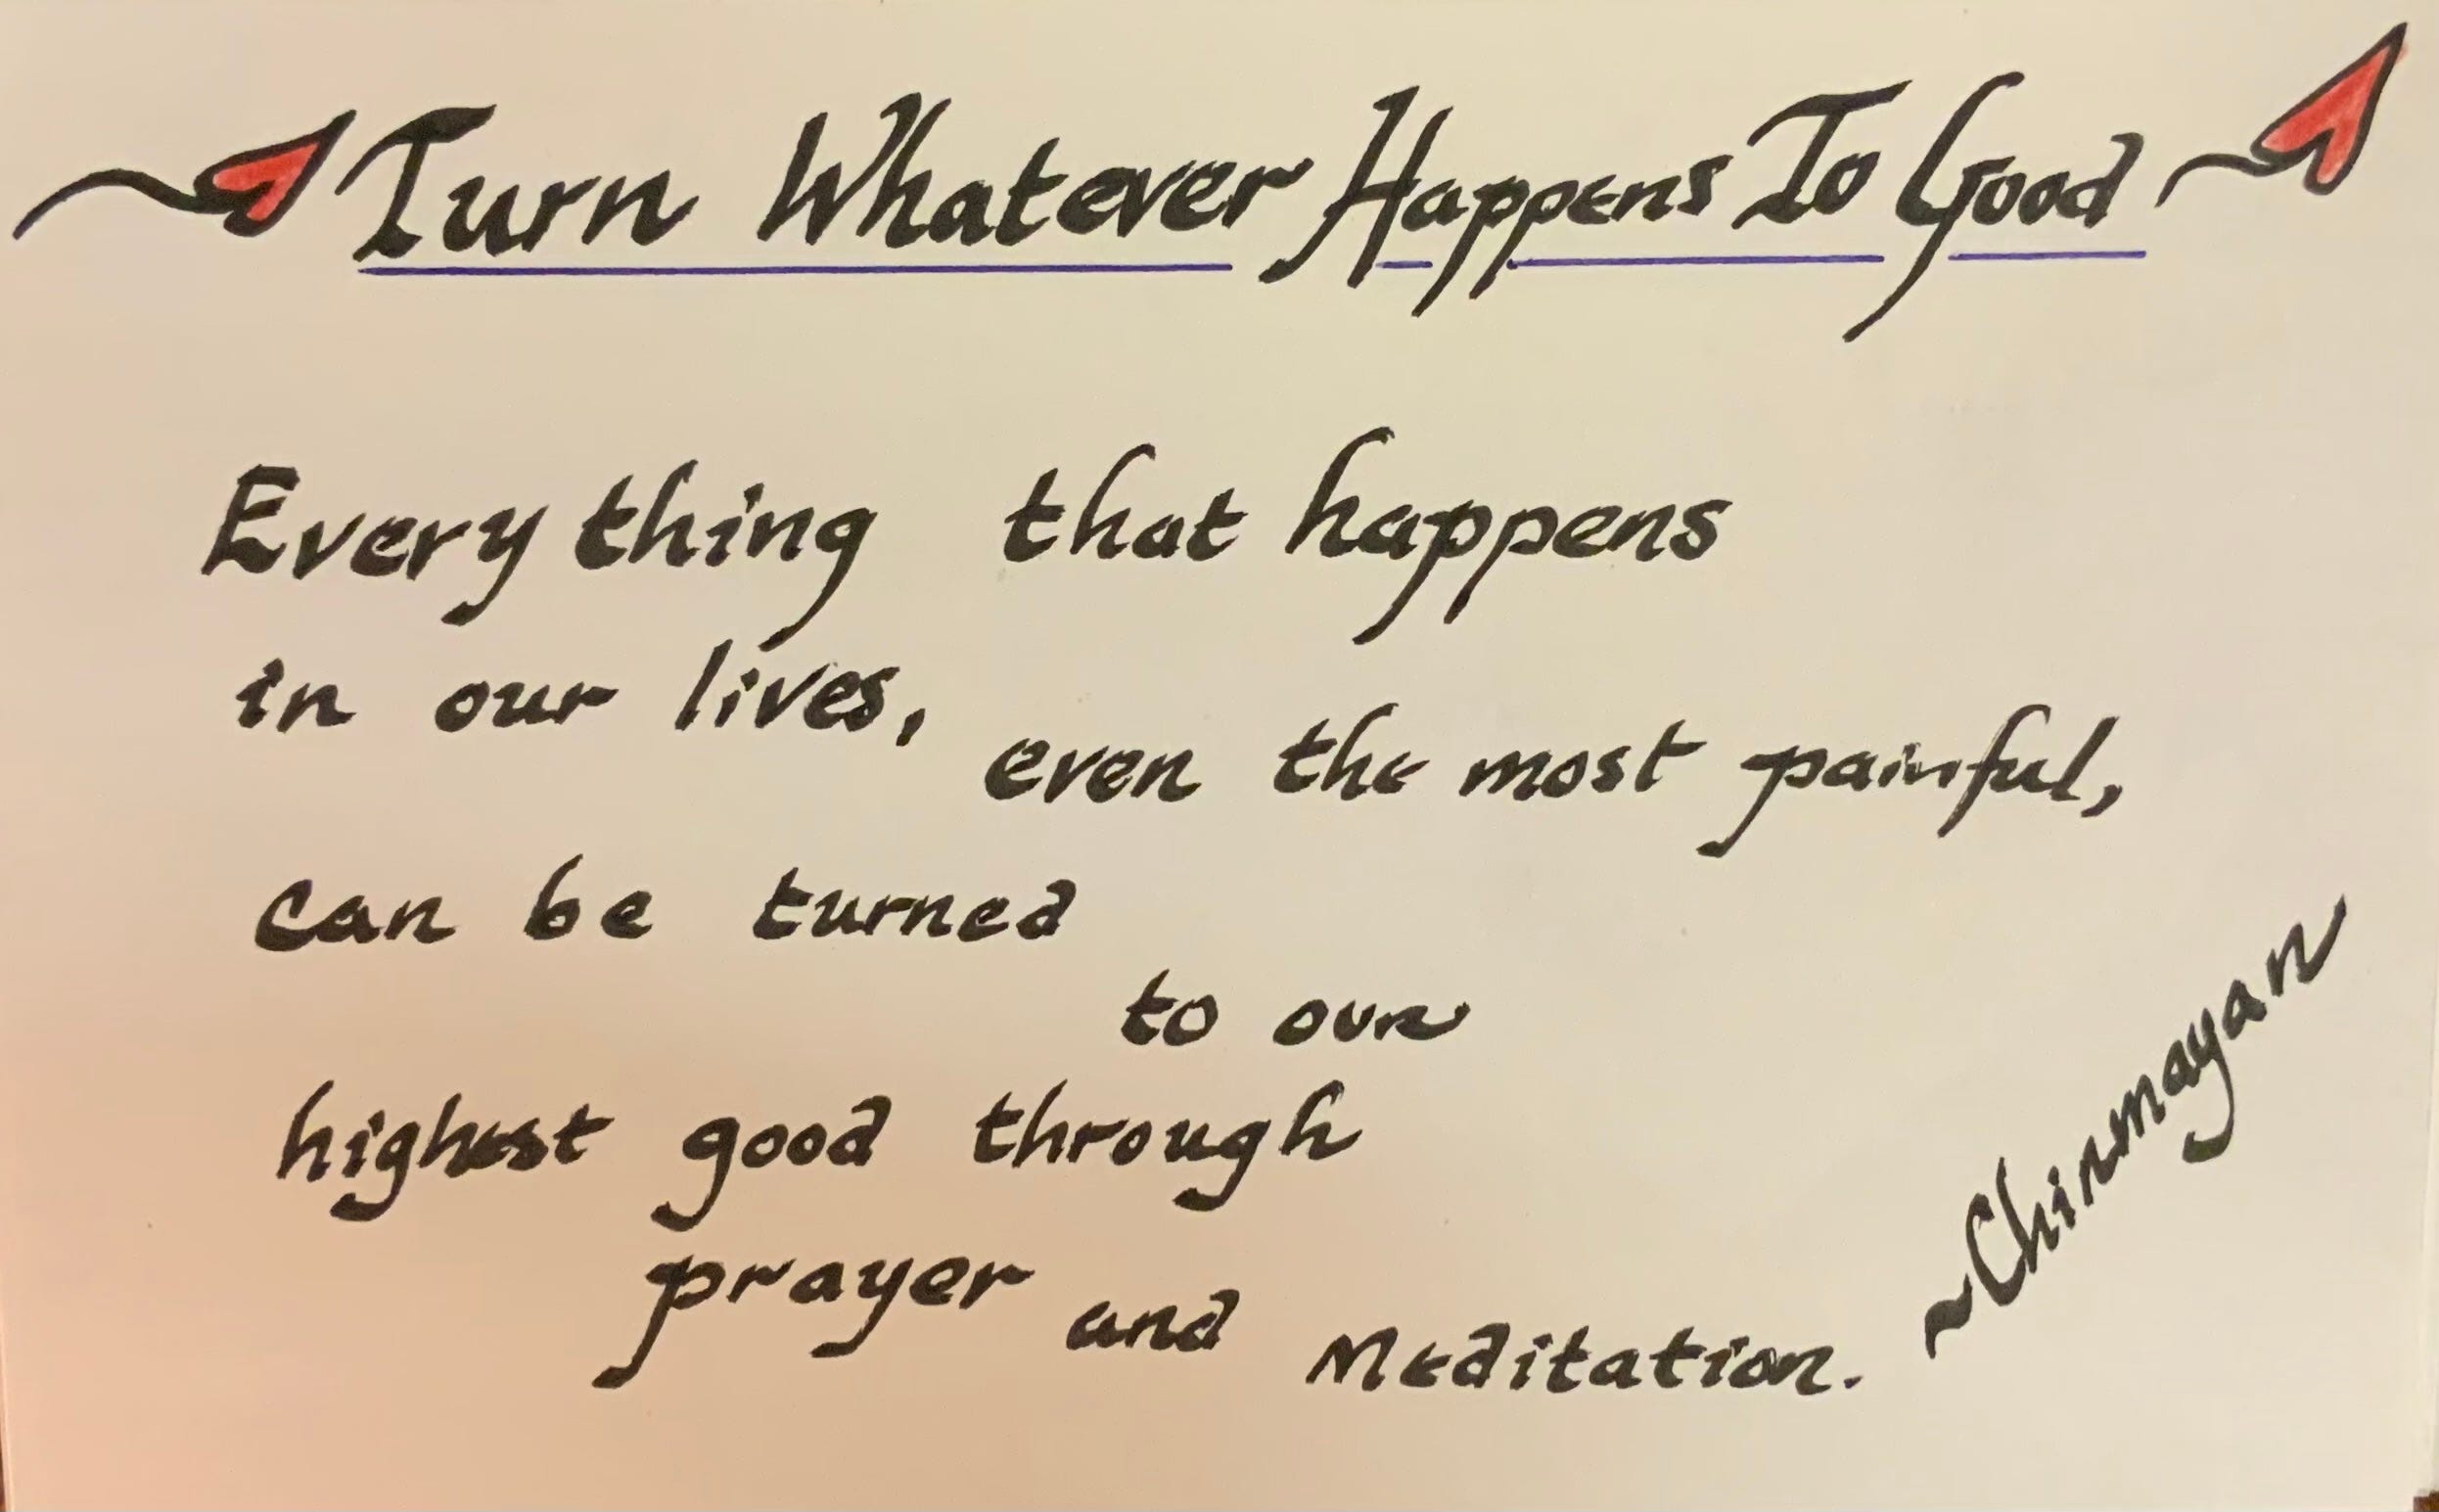 Turn Whatever Happens To Good
Everything that happens
in our lives,
even the most painful,
can be turned
to our
highest good through
prayer and Meditation.
~Chinmayan